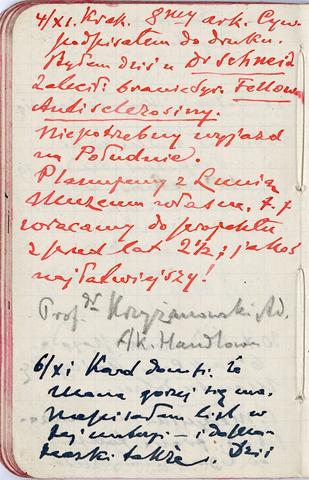 4/XI. Krak. 8my ark. Cyw.
podpisałem do druku.
Byłem dziś u Dr Schneid
zalecił: brać jodyn. Fellows
Antisclerosiny.
Niepotrzebny wyjazd
na Południe.
Planujemy z Lunią
Muzeum własne, t. j.
wracamy do projektu
z przed lat 2½; jakoś
najłatwiejszy!
Prof. dr Krzyżanowski Ad.
A/k. Handlowa
6/XI Kard donosi. że
Mama gorzej się ma.
Napisałem list w
tej
także. Dziś